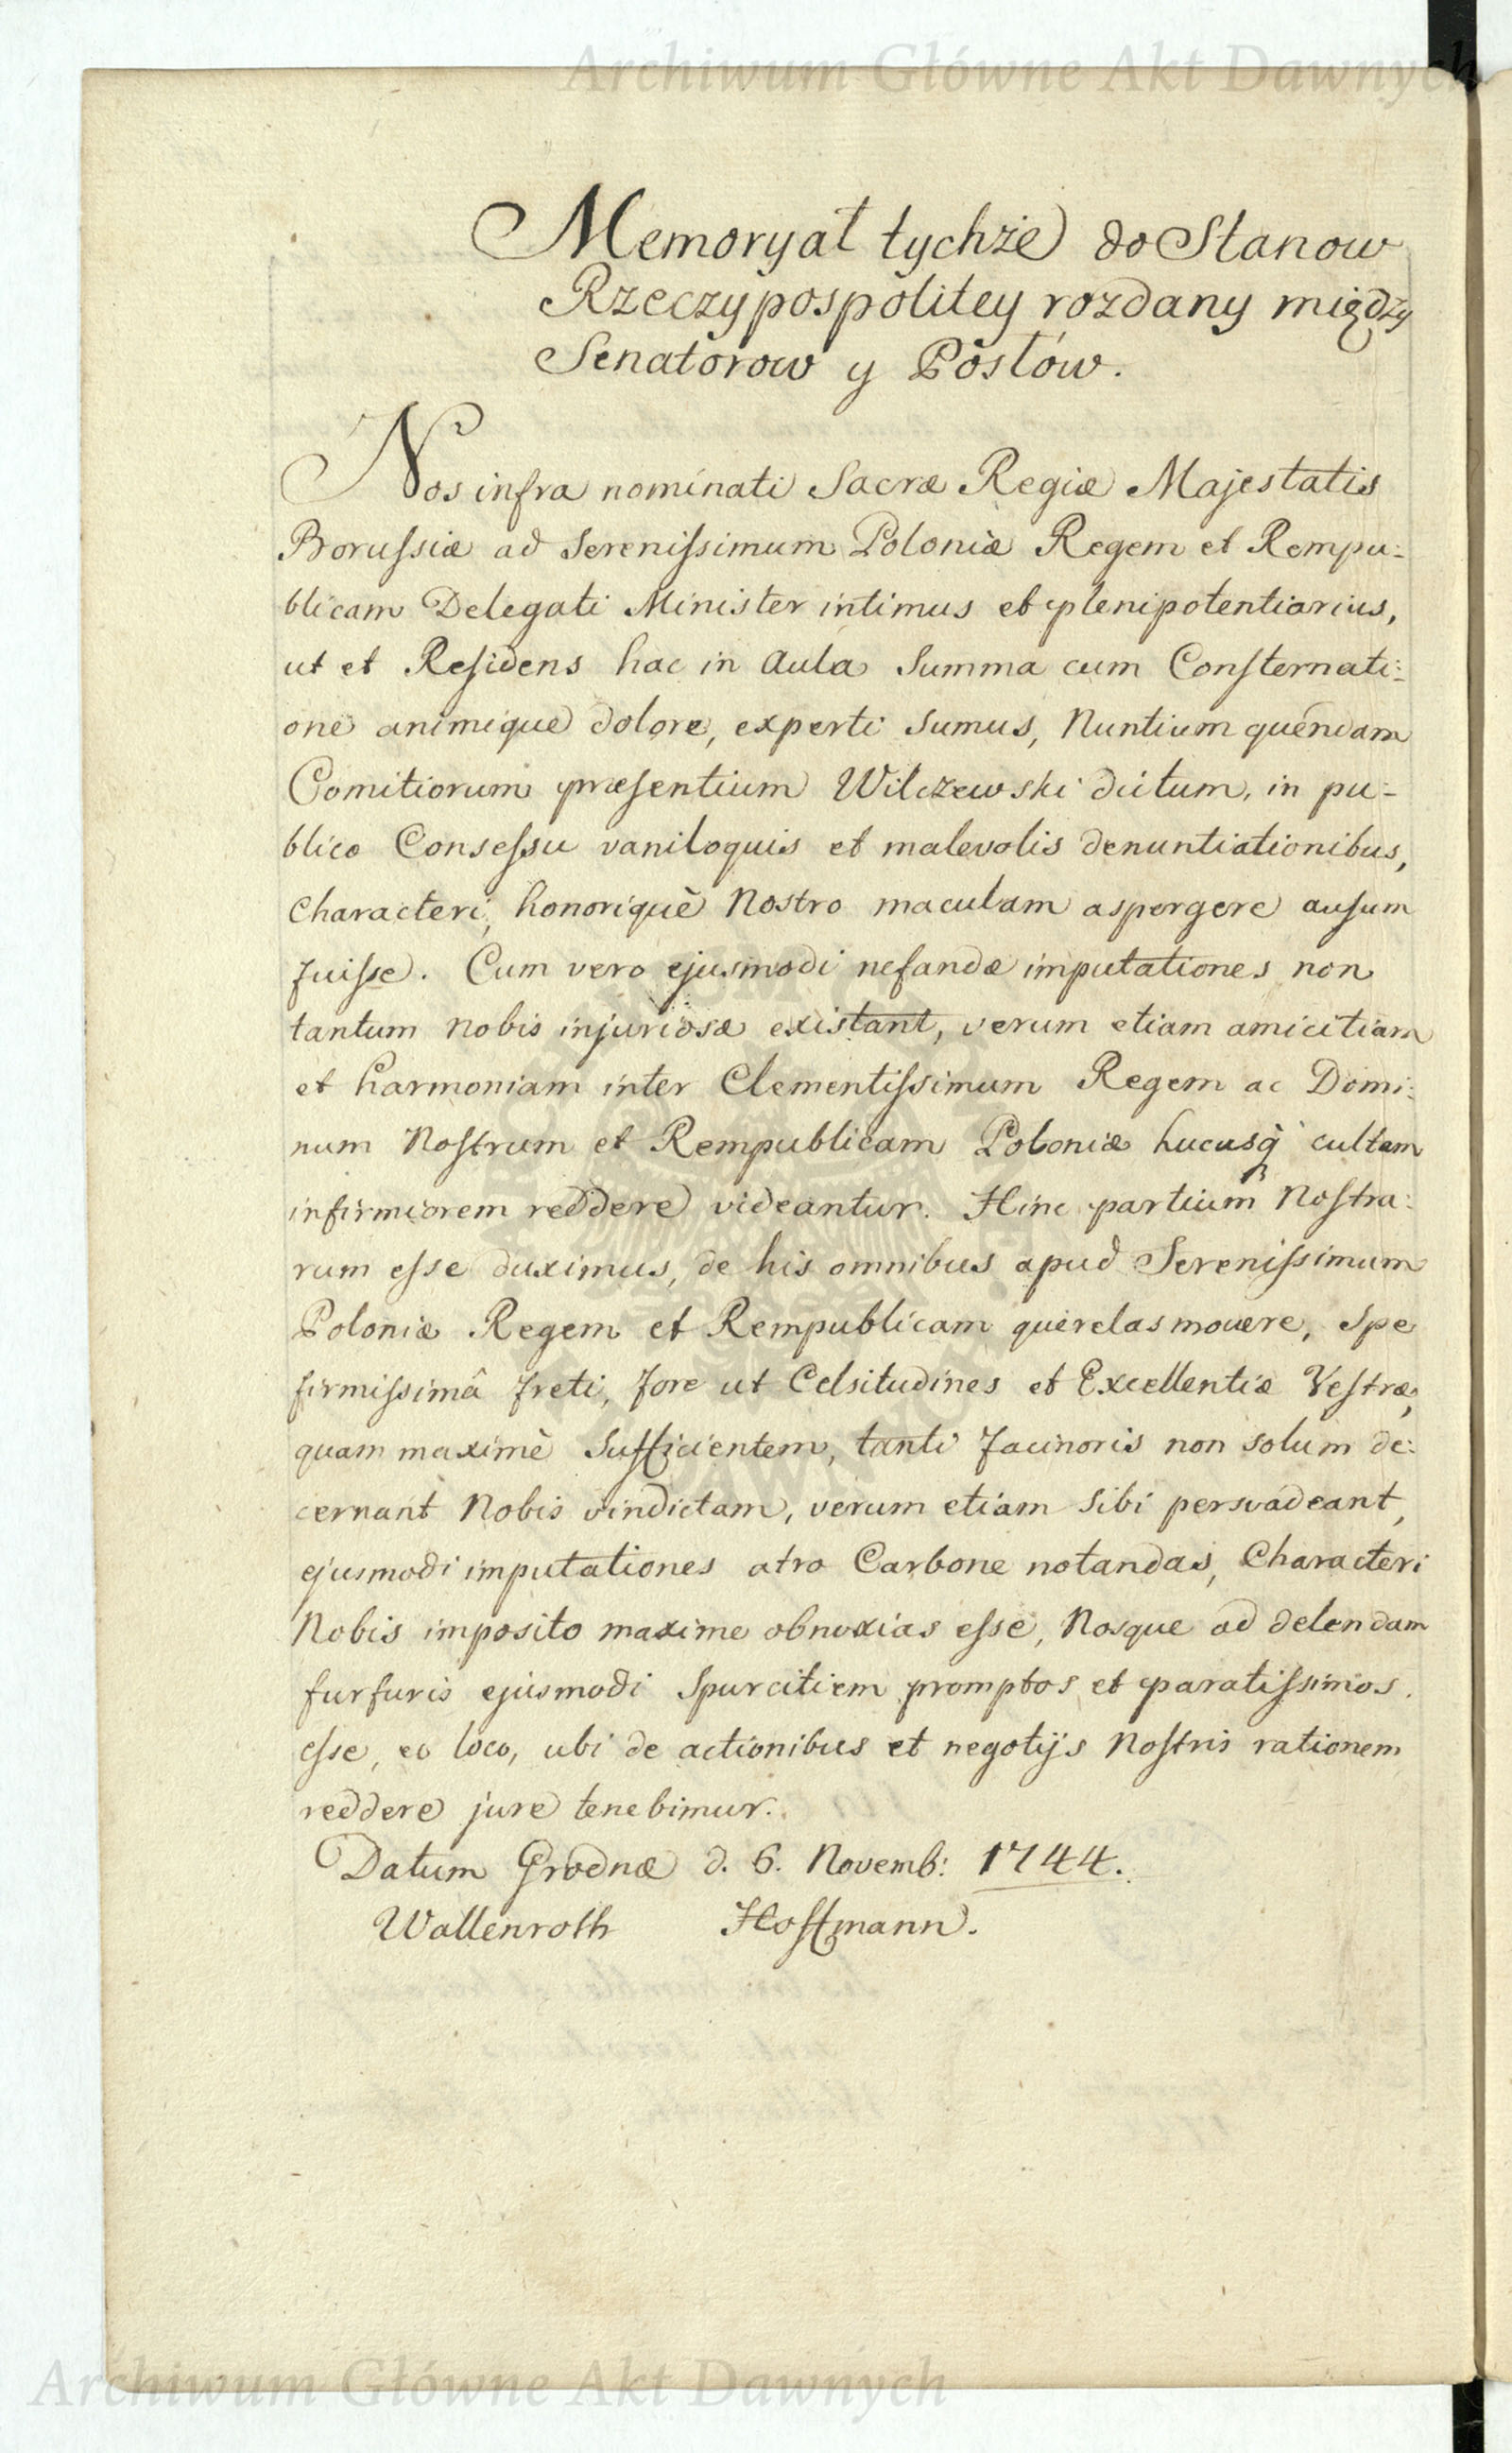 Archiwum Główne Akt Dawnych
Memoryał tychże do Stanow
Rzeczypospolitey rozdany między
Senatorow y Posłów.
Nos infra nominati Sacræ Regiæ Majestatis
Borufsiæ ad Serenifsimum Poloniæ Regem et Rempu:
blicam Delegati Minister intimus et plenipotentiarius,
ut et Refidens hac in Aula Summa cum Confternati:
one animique dolore, experti Sumus, Nuntium quendam
Comitiorum præfentium Wilczewski dictum, in pu:
blico Consefsu vaniloquis et malevolis denuntiationibus,
Characteri, honorique Nostro maculam aspergere aufum
fuifse. Cum vero ejusmodi nefandæ imputationes non
tantum nobis injuriosæ existant, verum etiam amicitiam
et harmoniam inter Clementifsimum Regem ac Domi:
num Noftrum et Rempublicam Poloniæ hucusq cultam
infirmiorem reddere videantur. Hinc partium Noftra:
rum efse duximus, de his omnibus apud Serenifsimum
Poloniæ Regem et Rempublicam querelas movere, Spe
firmifsimâ freti, fore ut Celsitudines et Excellentiæ Veftræ,
quam maximè Sufficientem, tanti facinoris non solum de:
cernant Nobis vindictam, verum etiam Sibi persvadeant,
ejusmodi imputationes atro Carbone notandas, Characteri
Nobis imposito maxime obnoxias efse, Nosque ad delendam
furfuris ejusmodi Spurcitiem promptos et paratifsimos
efse, eo loco, ubi de actionibus et negotijs Noftris rationem
reddere jure tenebimur.
Datum Grodnæ d. 6. Novemb: 1744.
Wallenroth Hoffmann.
Archiwum Główne Akt Dawnych